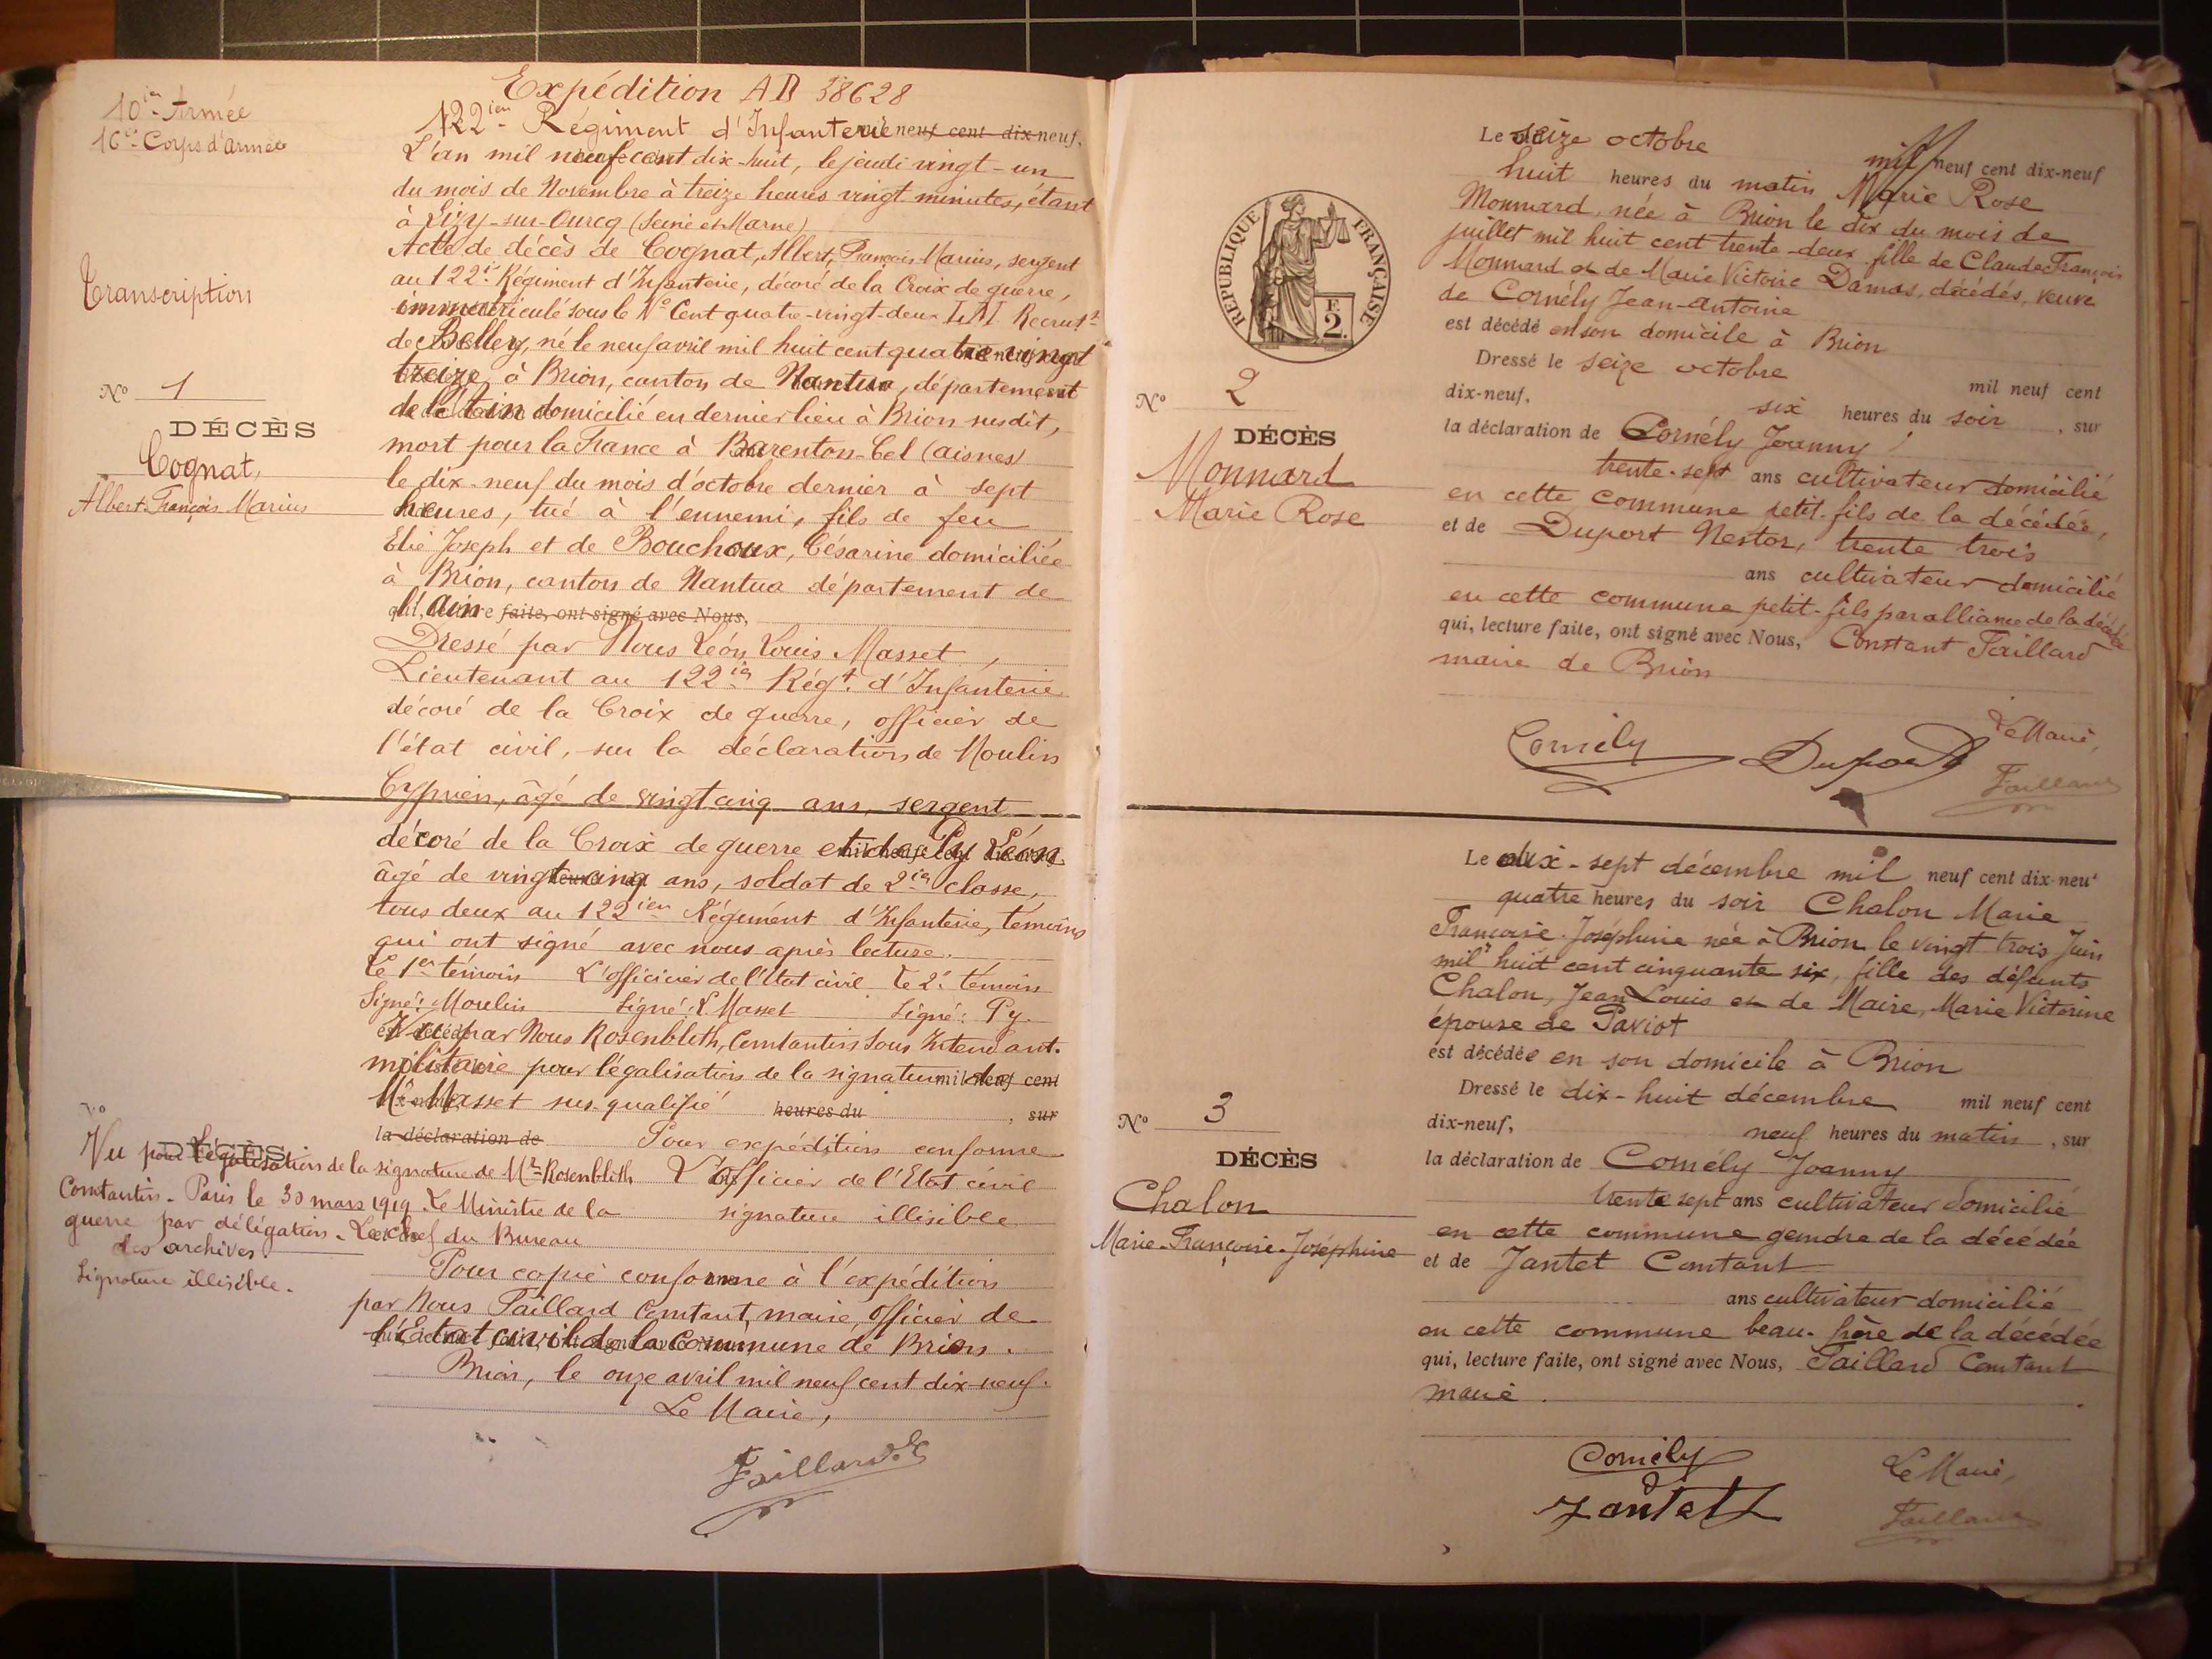 10ième Armée
16e Corps d'armée
Transcription
N° 1
DÉCÈS
Cognat,
Albert François Marius
Expédition AD 38628
122ième Régiment d'Infanterie neuf cent dix-neuf,
L'an mil neuf cent dix-huit, le jeudi vingt-un
du mois de Novembre à treize heures vingt minutes, étant
à Lizy-sur-Ourcq (Seine et Marne)
Acte de décès de Cognat, Albert, François Marius, sergent
au 122e Régiment d'Infanterie, décoré de la Croix de guerre,
immatriculé sous le N° Cent quatre-vingt-deux L.M. Recrutt
de Belley, né le neuf avril mil huit cent quatre-vingt
treize à Brion, canton de Nantua, département
de l'Ain domicilié en dernier lieu à Brion susdit,
mort pour la France à Barenton-Cel (aisnes)
le dix-neuf du mois d'octobre dernier à sept
heures, tué à l'ennemi, fils de feu
Elie Joseph et de Bouchoux, Césarine domiciliée
à Brion, canton de Nantua département de
l'Ain faite, ont signé avec Nous,
Dressé par Nous Léon Louis Masset,
Lieutenant au 122ie Régt. d'Infanterie
décoré de la Croix de guerre, officier de
l'état civil, sur la déclaration de Moulin
Cyprien, âgé de vingt cinq ans, sergent
décoré de la Croix de guerre et de Py Léon
âgé de vingt cinq ans, soldat de 2ie classe,
tous deux au 122ième Régiment d'Infanterie, témoins
qui ont signé avec nous après lecture.
Le 1er témoin L'officier de l'Etat civil Le 2e témoin
Signé: Moulin Signé: L. Masset Signé: Py.
Vu par Nous Rosenblith, Constantin Sous Intendant.
militaire pour légalisation de la signature de mil neuf cent
Mr Masset sus-qualifié heures du , sur
la déclaration de Pour expédition conforme
L'Officier de l'Etat civil
signature illisible
N°
DÉCÈS
Vu pour légalisation de la signature de Mr Rosenblith
Constantin - Paris le 30 mars 1919. Le Ministre de la
guerre par délégation - Le chef du Bureau
des archives
Signature illisible.
Pour copie conforme à l'expédition
par Nous Taillard Constant, maire, officier de
l'Etat civil de la Commune de Brion.
Brion, le onze avril mil neuf cent dix-neuf.
Le Maire,
Taillard
RÉPUBLIQUE FRANÇAISE
F. 2.
N° 2
DÉCÈS
Monnard
Marie Rose
Le seize octobre mil neuf cent dix-neuf
huit heures du matin Marie Rose
Monnard, née à Brion le dix du mois de
juillet mil huit cent trente-deux fille de Claude François
Monnard et de Marie Victoire Damas, décédés, veuve
de Cornély Jean-Antoine
est décédé en son domicile à Brion
Dressé le seize octobre mil neuf cent
dix-neuf, six heures du soir , sur
la déclaration de Cornély Joanny
trente-sept ans cultivateur domicilié
en cette commune petit-fils de la décédée,
et de Duport Nestor, trente trois
ans cultivateur domicilié
en cette commune petit-fils par alliance de la décédée
qui, lecture faite, ont signé avec Nous, Constant Taillard
maire de Brion
Cornély Duport Le Maire,
Taillard
N° 3
DÉCÈS
Chalon
Marie-Françoise-Joséphine
Le dix-sept décembre mil neuf cent dix-neuf
quatre heures du soir Chalon Marie
Françoise Joséphine née à Brion le vingt trois Juin
mil huit cent cinquante six, fille des défunts
Chalon, Jean Louis et de Maire, Marie Victorine
épouse de Paviot
est décédée en son domicile à Brion
Dressé le dix-huit décembre mil neuf cent
dix-neuf, neuf heures du matin , sur
la déclaration de Cornély Joanny
trente sept ans cultivateur domicilié
en cette commune gendre de la décédée
et de Jantet Constant
ans cultivateur domicilié
en cette commune beau-frère de la décédée
qui, lecture faite, ont signé avec Nous, Taillard Constant
maire.
Cornély Le Maire,
Jantet Taillard